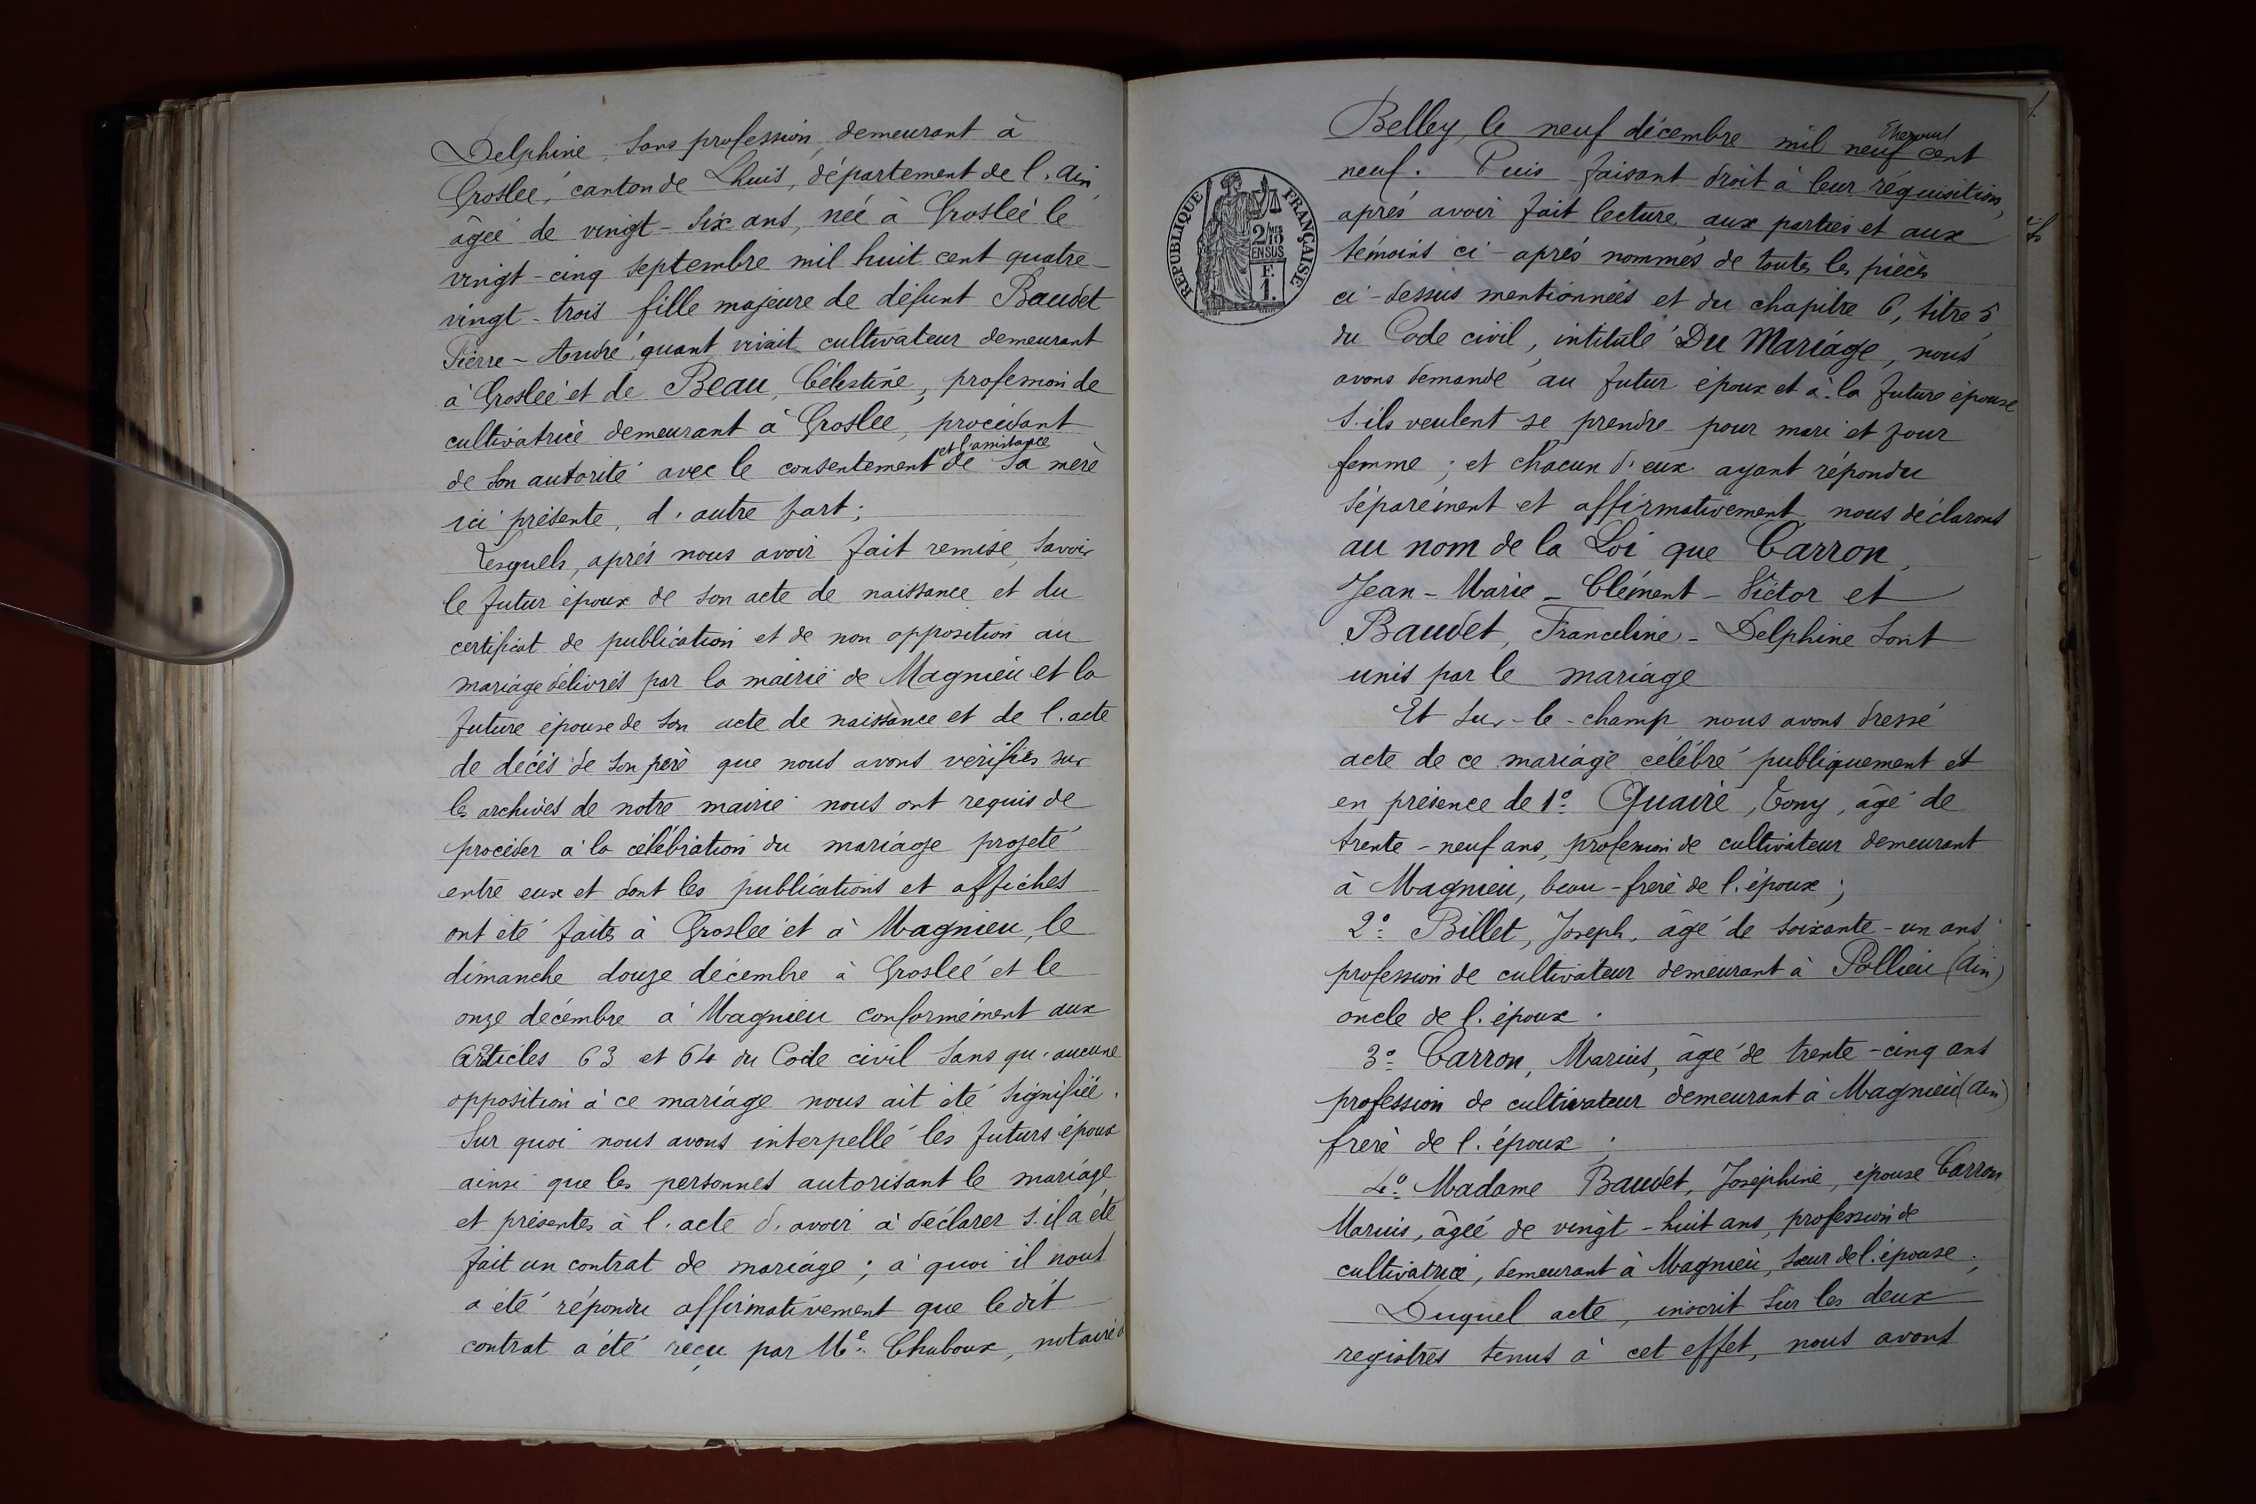 Delphine, sans profession, demeurant à
Groslée, canton de Lhuis, département de l'Ain,
âgée de vingt-six ans, née à Groslée le
vingt-cinq septembre mil huit cent quatre-
vingt-trois fille majeure de défunt Baudet
Pierre-André, quant vivait cultivateur demeurant
à Groslée et de Beau, Célestine, profession de
cultivatrice demeurant à Groslée, procédant
de son autorité avec le consentement et l'assistance de sa mère
ici présente, d'autre part;
Lesquels, après nous avoir fait remise, savoir
le futur époux de son acte de naissance et du
certificat de publication et de non opposition au
mariage délivrés par la mairie de Magnieu et la
future épouse de son acte de naissance et de l'acte
de décès de son père que nous avons vérifiés sur
les archives de notre mairie nous ont requis de
procéder à la célébration du mariage projeté
entre eux et dont les publications et affiches
ont été faites à Groslée et à Magnieu, le
dimanche douze décembre à Groslée et le
onze décembre à Magnieu conformément aux
articles 63 et 64 du Code civil sans qu'aucune
opposition à ce mariage nous ait été signifiée.
Sur quoi nous avons interpellé les futurs époux
ainsi que les personnes autorisant le mariage
et présentes à l'acte d'avoir à déclarer s'il a été
fait un contrat de mariage; à quoi il nous
a été répondu affirmativement que le dit
contrat a été reçu par Me Chaboux, notaire à
Belley, le neuf décembre mil neuf cent
neuf. Puis faisant droit à leur réquisition,
après avoir fait lecture aux parties et aux
témoins ci-après nommés de toutes les pièces
ci-dessus mentionnées et du chapitre 6, titre 5
du Code civil, intitulé Du Mariage, nous
avons demandé au futur époux et à la future épouse
s'ils veulent se prendre pour mari et pour
femme; et chacun d'eux ayant répondu
séparément et affirmativement nous déclarons
au nom de la Loi que Carron,
Jean-Marie-Clément-Victor et
Baudet, Franceline-Delphine sont
unis par le mariage
Et sur-le-champ nous avons dressé
acte de ce mariage célébré publiquement et
en présence de 1º Quairé, Tony, âgé de
trente-neuf ans, profession de cultivateur demeurant
à Magnieu, beau-frère de l'époux;
2º Billet, Joseph, âgé de soixante-un ans
profession de cultivateur demeurant à Pollieu (Ain)
oncle de l'époux.
3º Carron, Marius, âgé de trente-cinq ans
profession de cultivateur demeurant à Magnieu (Ain)
frère de l'époux;
4º Madame Baudet, Joséphine, épouse Carron
Marius, âgée de vingt-huit ans, profession de
cultivatrice, demeurant à Magnieu, sœur de l'épouse;
Duquel acte, inscrit sur les deux
registres tenus à cet effet, nous avons
RÉPUBLIQUE FRANÇAISE
2/10
EN SUS
F.
1.